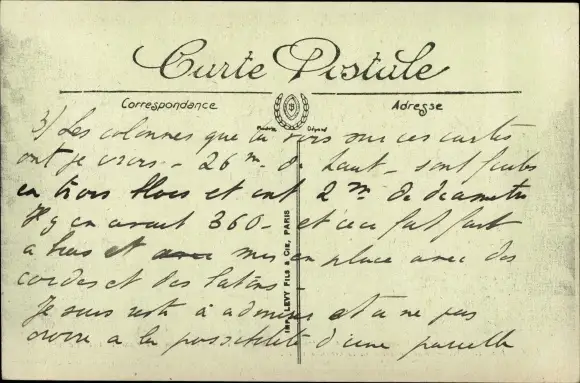 Carte Postale
Correspondance
Adresse
Modèle Déposé
3) Les colonnes que tu vois sur ces cartes
ont je crois - 26 m. de haut - sont faites
en trois blocs et ont 2 m de diamètre
Il y en avait 360 - et ceci fut fait
a bras et mis en place avec des
cordes et des
Je suis resté à admirer et a ne pas
croire a la possibilité d'une pareille
IMP. LEVY FILS & Cie, PARIS